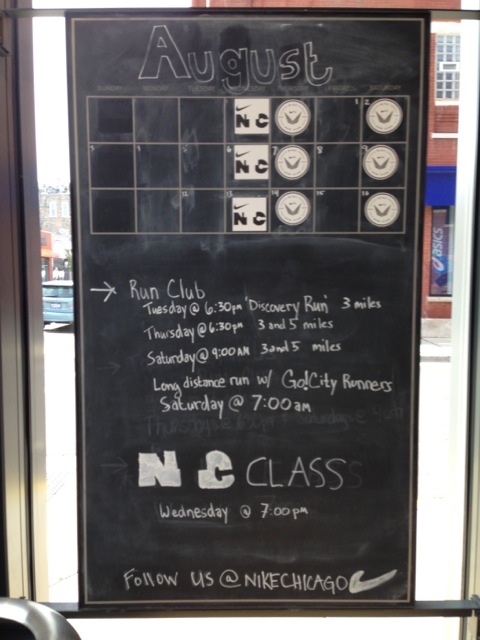 August
SUNDAY MONDAY TUESDAY WEDNESDAY THURSDAY FRIDAY SATURDAY
NC 1 2
6 NC 7 8 9
12 13 NC 14 15 16
Run Club
Tuesday @ 6:30pm 'Discovery Run' 3 miles
Thursday @ 6:30pm 3 and 5 miles
Saturday @ 9:00AM 3 and 5 miles
Long distance run w/ Go!City Runners
Saturday @ 7:00am
NC CLASS
Wednesday @ 7:00pm
FOLLOW US @NIKECHICAGO
asics